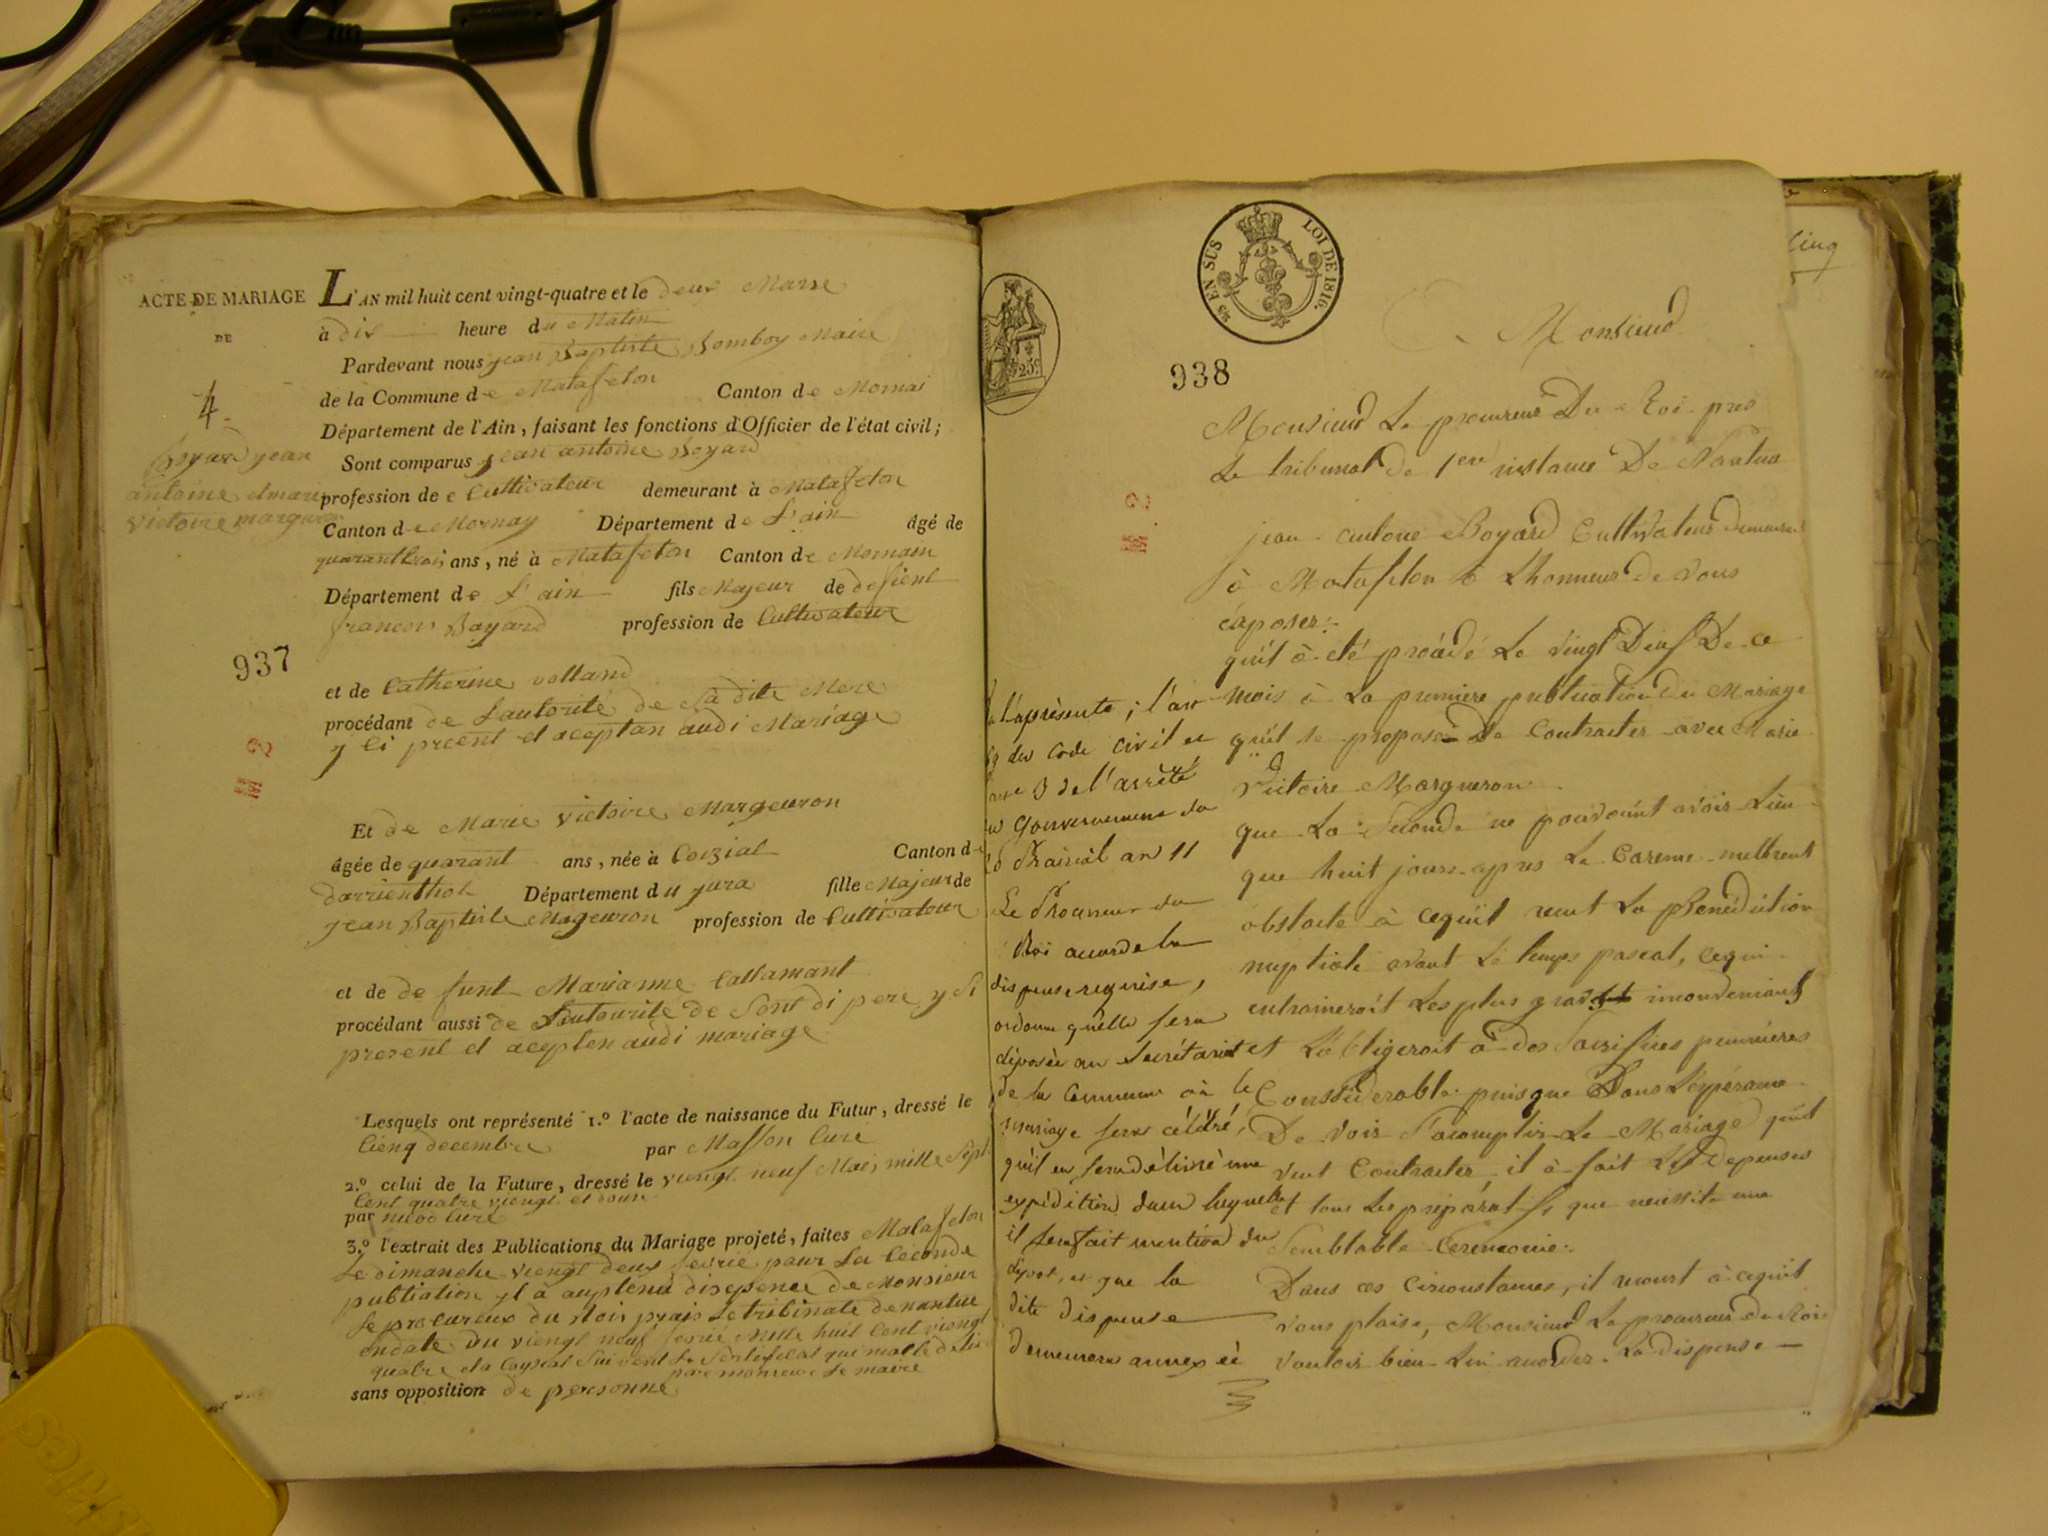 ACTE DE MARIAGE
DE
4.
Boyard jean
antoine et marie
victoire margueron
L'AN mil huit cent vingt-quatre et le deux Marse
à dix heure du Matin
Pardevant nous jean Baptiste Bomboy Maire
de la Commune de Matafelon Canton de Mornai
Département de l'Ain, faisant les fonctions d'Officier de l'état civil;
Sont comparus jean antoine Boyard
profession de Cultivateur demeurant à Matafelon
Canton de Mornay Département de L'ain âgé de
quarantetrois ans, né à Matafelon Canton de Mornain
Département de L'ain fils Majeur de defient
francois Bayard profession de Cultivateur
937
et de Catherine volland
procédant de Lautorité de Sa dite Mere
y ci preent et aceptan audi Mariage
Et de Marie victoire Margeuron
âgée de quarant ans, née à Coizial Canton de
darrienthol Département du jura fille Majeur de
jean Baptiste Mageuron profession de Cultivateur
et de de funt Marianne Callamant
procédant aussi de Lautourite de Sont di pere y Si
present et acepten audi mariage
Lesquels ont représenté 1.º l'acte de naissance du Futur, dressé le
cienq decembre par Masson Curé
2.º celui de la Future, dressé le viengt neuf Mai mille Sept
Cent quatre viengt et
par nicod curé
3.º l'extrait des Publications du Mariage projeté, faites Matafelon
Le dimanche viengt deux fevrié pour La Ceconde
publiation yl à auptenu dispence de Monsieur
Le procureux du Rois prais Le tribinale de nantue
endate du viengt neuf fevrié Mille huit Cent viengt
quatre et a Coysial Suivent Le Sertifficat qui
par monsieur Le maire
sans opposition de personne
25 EN SUS LOI DE 1816.
25c
938
A Monsieur
Monsieur Le procureur Du Roi près
Le tribunal de 1ere instance De Nantua
jean antoine Boyard Cultivateur demeurant
à Matafelon à Lhonneur de vous
éxposer:
qu'il à été procédé Le vingt Deux De ce
mois à La premiere publication du Mariage
qu'il se propose De Contracter avec Marie
Victoire Margueron
que La Seconde ne pouvoint avoir Lieu
que huit jours apres Le Careme mettroit
obstacle à cequil reçut La Bénédiction
nuptiale avant Le temps pascal, cequi
entraineroit Les plus graves inconveniants
et L'obligeroit à des Sacrifices pecunieres
Considerable puisque Dans L'éspérance
De voir S'acomplir Le Mariage qu'il
veut Contracter, il à fait Les Depenses
et tous Les préparatifs que necessite une
Semblable Ceremonie.
Dans ces Circonstances, il recourt à cequil
vous plaise, Monsieur Le procureur du Roi
vouloir bien Lui acorder La dispense
la présente; l'art
du code civil et
3 de l'arrêté
du Gouvernement du
20 Prairial an 11
Le Procureur du
Roi accorde la
dispense requise,
ordonne qu'elle sera
déposée au Secrétariat
de la Commune où le
mariage sera célébré,
qu'il en sera délivré une
expédition dans laquelle
il sera fait mention du
dépot, et que la
dite dispense
demeurera annexée
cinq